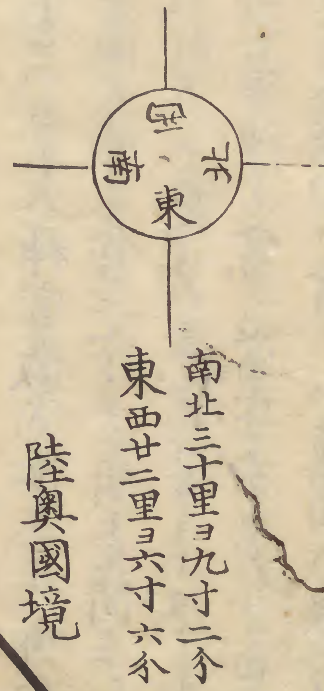 西
北
南
東
南北三十里ヨ九寸二分
東西廿二里ヨ六寸六分
陸奥國境